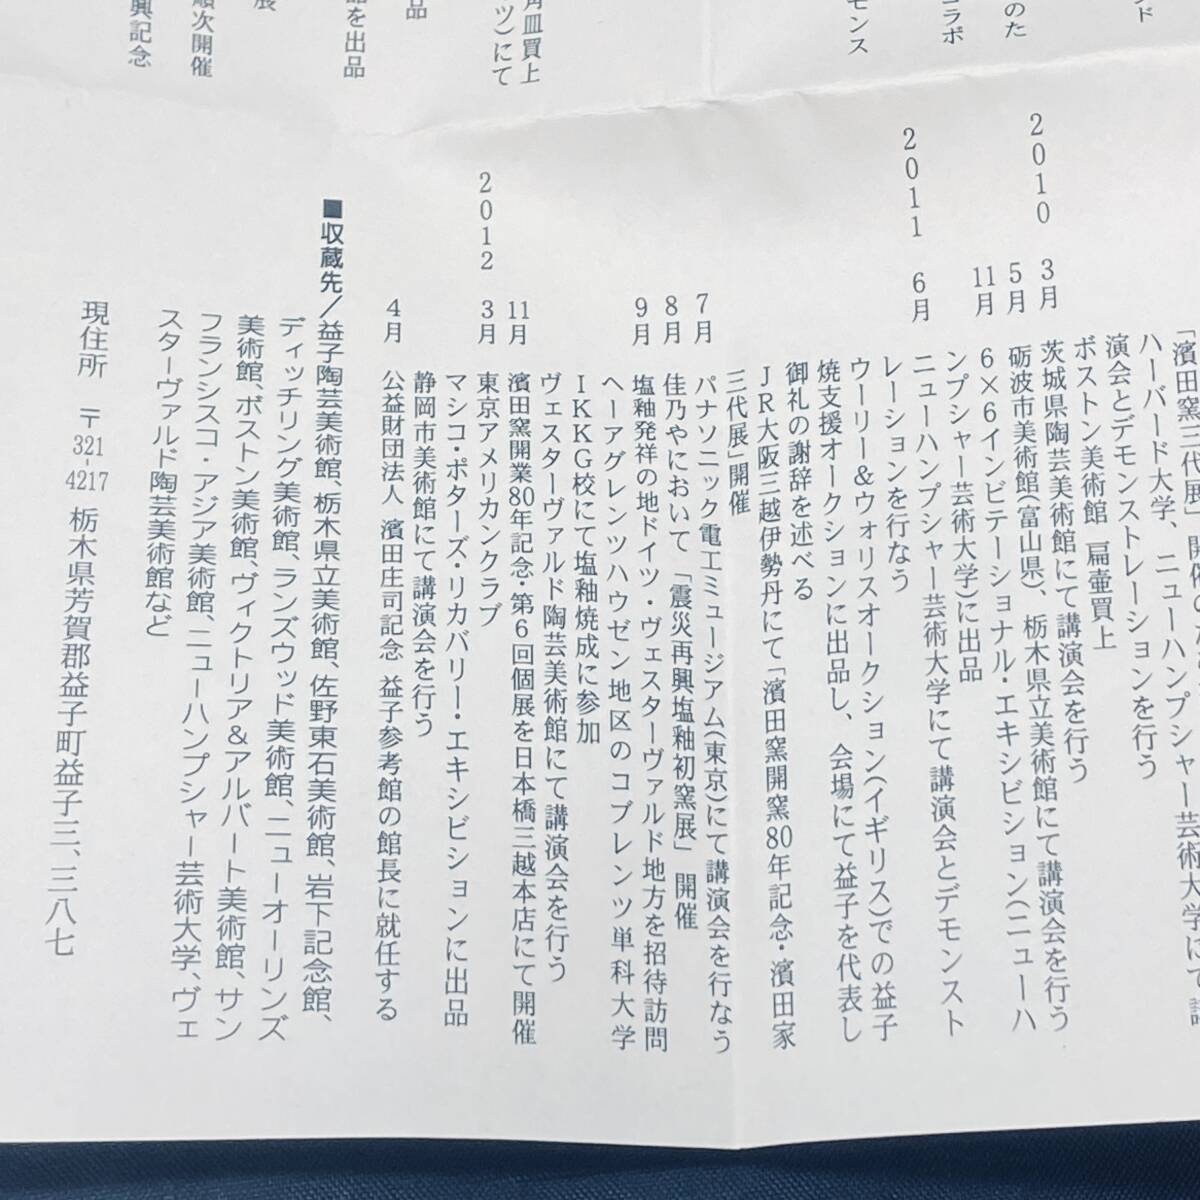 ンド
のた
コラボ
モンス
角皿買上
ツ)にて
品
品を出品
展
順次開催
興記念
ハーバード大学、ニューハンプシャー芸術大学にて講
演会とデモンストレーションを行う
ボストン美術館 扁壷買上
2010 3月 茨城県陶芸美術館にて講演会を行う
5月 砺波市美術館(富山県)、栃木県立美術館にて講演会を行う
11月 6×6インビテーショナル・エキシビション(ニューハ
ンプシャー芸術大学)に出品
2011 6月 ニューハンプシャー芸術大学にて講演会とデモンスト
レーションを行なう
ウーリー&ウォリスオークション(イギリス)での益子
焼支援オークションに出品し、会場にて益子を代表し
御礼の謝辞を述べる
JR大阪三越伊勢丹にて「濱田窯開窯80年記念・濱田家
三代展」開催
7月 パナソニック電工ミュージアム(東京)にて講演会を行なう
8月 佳乃やにおいて「震災再興塩釉初窯展」開催
9月 塩釉発祥の地ドイツ・ヴェスターヴァルド地方を招待訪問
ヘーアグレンツハウゼン地区のコブレンツ単科大学
IKKG校にて塩釉焼成に参加
ヴェスターヴァルド陶芸美術館にて講演会を行う
11月 濱田窯開業80年記念・第6回個展を日本橋三越本店にて開催
2012 3月 東京アメリカンクラブ
マシコ・ポターズ・リカバリー・エキシビションに出品
静岡市美術館にて講演会を行う
4月 公益財団法人 濱田庄司記念 益子参考館の館長に就任する
■収蔵先/益子陶芸美術館、栃木県立美術館、佐野東石美術館、岩下記念館、
ディッチリング美術館、ランズウッド美術館、ニューオーリンズ
美術館、ボストン美術館、ヴィクトリア&アルバート美術館、サン
フランシスコ・アジア美術館、ニューハンプシャー芸術大学、ヴェ
スターヴァルド陶芸美術館など
現住所 〒321-4217 栃木県芳賀郡益子町益子三、三八七